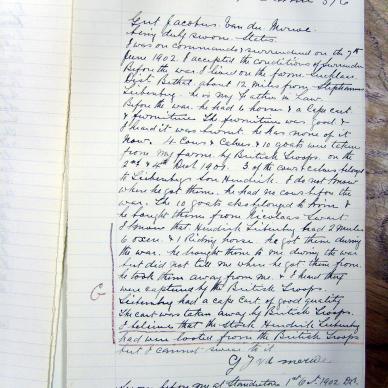 Gert Jacobus Van der Merwe
being duly sworn States.
I was on commando & surrendered on the 7th
June 1902. I accepted the conditions of surrender
Before the war I lived on the farm
Dist Bethel about 12 miles from Stephannus
Liebenberg. he is my Father in Law.
Before the war he had 6 horses & a Cape cart
& furniture The furniture was good &
I heard it was burnt. he has none of it
now. 4 Cows & Calves & 10 goats were taken
from my farm by British Troops. on the
2nd & 4th 1901. 3 of the cows & calves belonged
to Liebenbergs son Hendrik. I do not know
where he got them. he had no cows before the
war. The 10 goats also belonged to him &
he bought them from Nicolaas Swart.
I know that Hendrik Liebenberg had 2 Mules
6 oxen & 1 Riding horse he got them during
the war. he brought them to me during the war
but did not tell me where he got them from.
he took them away from me & I heard they
were captured by the British Troops.
G
Liebenberg had a cape cart of good quality
The cart was taken away by British Troops.
I believe that the stock Hendrik Liebenberg
had were looted from the British Troops
but I cannot swear to it
G J v d Merwe
before me at Standerton 6 Oct 1902